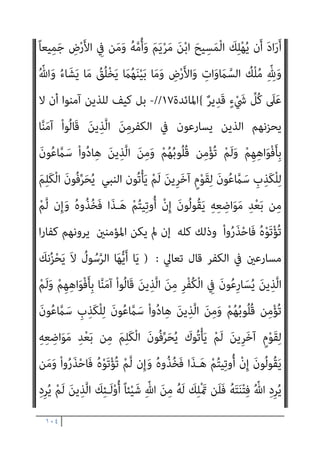 أَرَادَ أَن يُهْلِكَ الْمَسِيحَ ابْنَ مَرْيَمَ وَأُمَّهُ وَمَن فِي الأَرْضِ جَمِيعاً
وَلِلّهِ مُلْكُ السَّمَاوَاتِ وَالأَرْضِ وَمَا بَيْنَهُمَا يَخْلُقُ مَا يَشَاءُ وَاللّهُ
عَلَى كُلِّ شَيْءٍ قَدِيرٌ }المائدة١٧ //- بل كيف للذين آمنوا أن لا
يحزنهم الذين يسارعون في الكفرمِنَ الَّذِينَ قَالُواْ آمَنَّا
بِأَفْوَاهِهِمْ وَلَمْ تُؤْمِن قُلُوبُهُمْ وَمِنَ الَّذِينَ هِادُواْ سَمَّاعُونَ
لِلْكَذِبِ سَمَّاعُونَ لِقَوْمٍ آخَرِينَ لَمْ يَأْتُونَ النبي يُحَرِّفُونَ الْكَلِمَ
مِن بَعْدِ مَوَاضِعِهِ يَقُولُونَ إِنْ أُوتِيتُمْ هَـذَا فَخُذُوهُ وَإِن لَّمْ
تُؤْتَوْهُ فَاحْذَرُواْ وذلك كله إن لم يكن المؤمنين يرونهم كفارا
مسارعين في الكفر قال تعالي : ( يَا أَيُّهَا الرَّسُولُ لاَ يَحْزُنكَ
الَّذِينَ يُسَارِعُونَ فِي الْكُفْرِ مِنَ الَّذِينَ قَالُواْ آمَنَّا بِأَفْوَاهِهِمْ وَلَمْ
تُؤْمِن قُلُوبُهُمْ وَمِنَ الَّذِينَ هِادُواْ سَمَّاعُونَ لِلْكَذِبِ سَمَّاعُونَ
لِقَوْمٍ آخَرِينَ لَمْ يَأْتُوكَ يُحَرِّفُونَ الْكَلِمَ مِن بَعْدِ مَوَاضِعِهِ
يَقُولُونَ إِنْ أُوتِيتُمْ هَـذَا فَخُذُوهُ وَإِن لَّمْ تُؤْتَوْهُ فَاحْذَرُواْ وَمَن
يُرِدِ اللّهُ فِتْنَتَهُ فَلَن تَمْلِكَ لَهُ مِنَ اللّهِ شَيْئاً أُوْلَـئِكَ الَّذِينَ لَمْ يُرِدِ
١٠٤